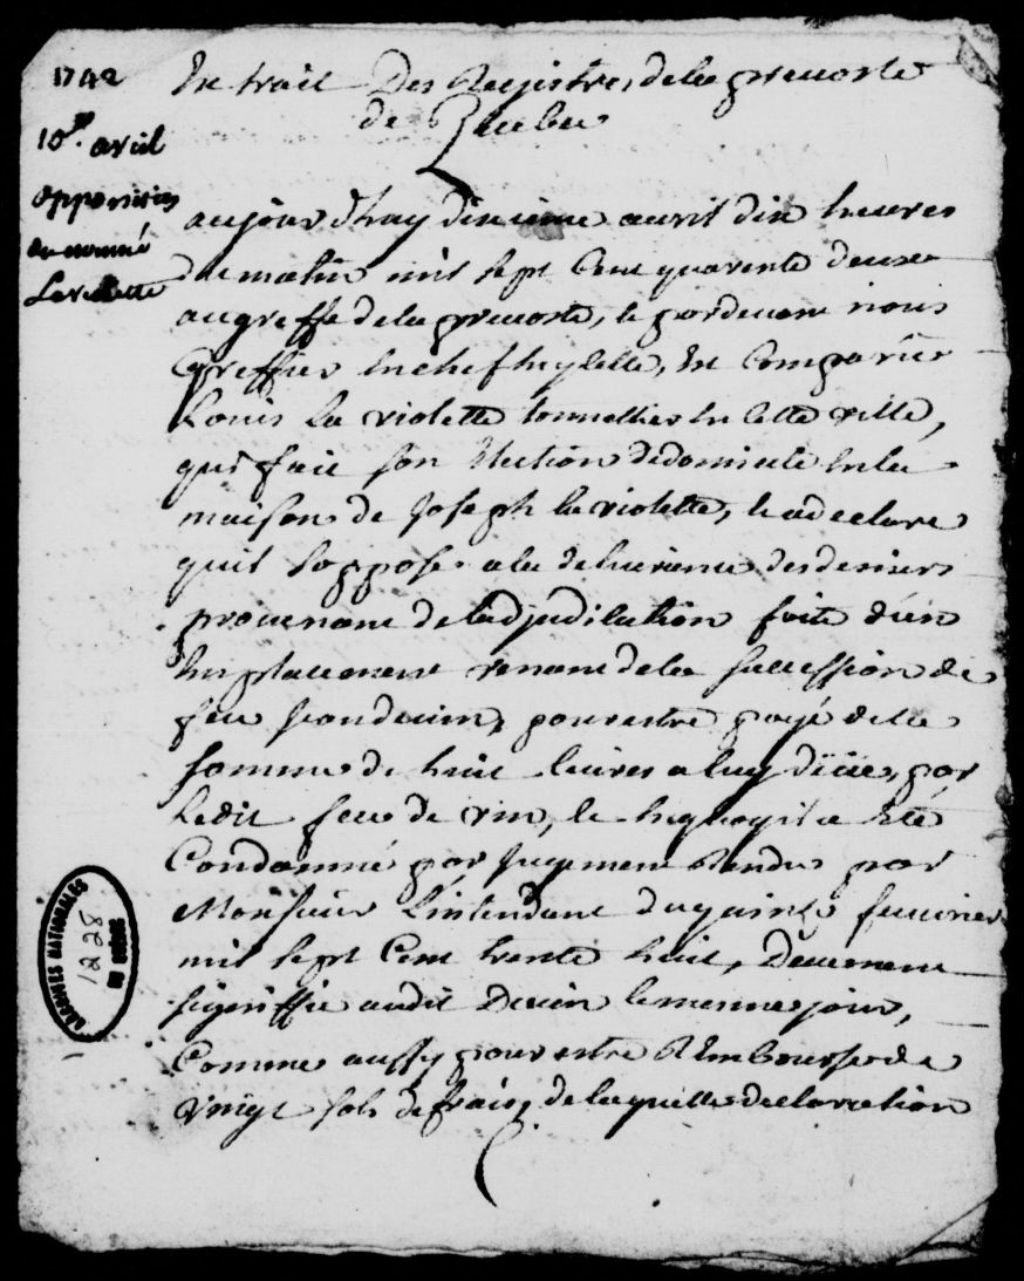 1742
10e. avril
opposition
du nommé
Laviolette
Extrait Des Registres de la prevosté
de Quebec
aujourd'huy dixieme avril dix heures
du matin mil sept Cent quarente deux
au greffe de la prevosté, et pardevant nous
Greffier en chef en ycelle, est Comparu
Louis La violette tonnellier en cette ville,
qui fait son Election de domicile en la
maison de Joseph la violette, lequel a declaré
quil soppose a la delivrance des deniers
provenant de ladjudication faite d'un
Emplacement venant de la succession de
feu Jean devin, pour estre payé de la
somme de huit livres a luy düe, par
Ledit feu de vin, et en quoy il a Eté
Condamné par Jugement Rendu par
Monsieur Lintendant du quinze fevrier
mil sept Cent trente huit, Deuement
signiffié audit Devin le mesme jour,
Comme aussy pour estre Remboursé de
vingt sols de frais, de laquelle declaration
ARCHIVES NATIONALES
DU QUÉBEC
1228